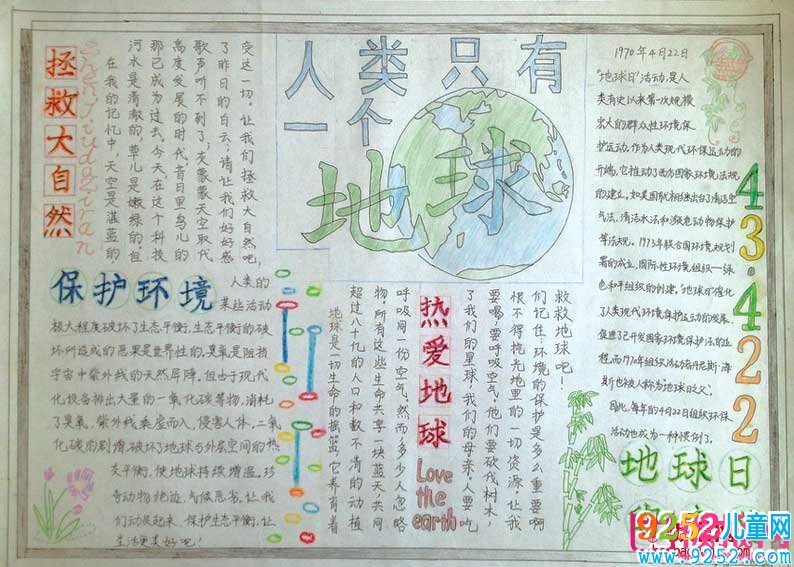 人类只有
一个
地球
拯救大自然
Zhengjiudaziran
在我的记忆中，天空是湛蓝的，
河水是清澈的，草儿是嫩绿的。但
那已成为过去。今天在这个科技
高度发展的时代，昔日里鸟儿的
歌声听不到了；灰蒙蒙天空取代
了昨日的白云；请让我们好好感
受这一切，让我们拯救大自然吧！
保护环境
人类的
某些活动
极大程度破坏了生态平衡，生态平衡的破
坏所造成的恶果是世界性的，臭氧是阻挡
宇宙中紫外线的天然屏障。但由于现代
化设备排出大量的一氧化碳等物，消耗
了臭氧，紫外线乘虚而入，侵害人体，二氧
化碳的剧增，破坏了地球与外层空间的热
交平衡，使地球持续增温。珍
奇动物绝迹，气候恶劣，让我
们动员起来，保护生态平衡，让
生活更美好吧！
热爱地球
Love
the
earth
地球是一切生命的摇篮，它养育着
超过八十亿的人口和数不清的动植
物，所有这些生命共享一块蓝天，共同
呼吸同一份空气。然而，多少人忽略
了我们的星球，我们的母亲。人要吃
要喝，要呼吸空气，他们要砍伐树木，
恨不得挖光地里的一切资源。让我
们记住：环境的保护是多么重要啊
救救地球吧！
1970年4月22日
“地球日”活动，是人
类有史以来第一次规模
宏大的群众性环境保
护运动。作为人类现代环保运动的
开端，它推动了西方国家环境法规
的建立。如美国就相继出台了清洁空
气法、清洁水法和濒危动物保护
等法规。1973年联合国环境规划
署的成立，国际性环境组织—绿
色和平组织的创建。“地球日”强化
了人类现代环境保护运动的发展，
促进了已开发国家环境保护法的进
程。而1970年组织活动者丹尼斯·海
斯也被人称为“地球日之父”。
因此，每年的4月22日组织环保
活动也成为一种惯例了。
43.422
地球日
9252儿童网
www.9252.com